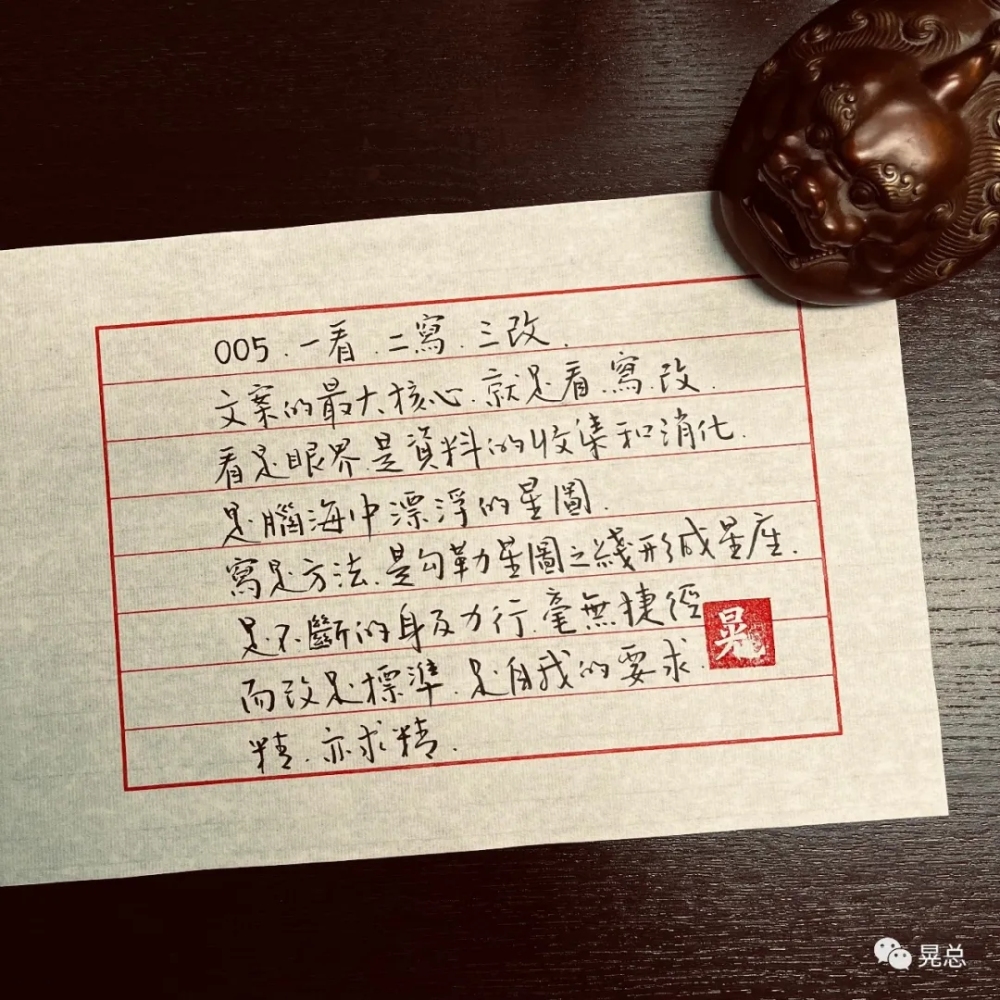 005.一看.二寫.三改.
文案的最大核心.就是看.寫.改.
看是眼界.是資料的收集和消化.
是腦海中漂浮的星圖.
寫是方法.是勾勒星圖之綫形成星座.
是不斷的身反力行.毫無捷徑
而改是標準.是自我的要求.
精.亦求精.
晃
晃总